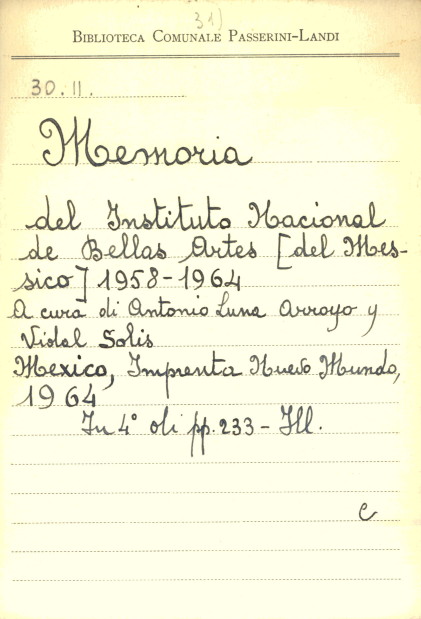 31)
BIBLIOTECA COMUNALE PASSERINI-LANDI
30.II.
Memoria
del Instituto Nacional
de Bellas Artes [del Mes-
sico] 1958-1964
A cura di Antonio Luna Arroyo y
Vidal Solis
Mexico, Imprenta Nuevo Mundo,
1964
In 4° di pp. 233 - Ill.
C